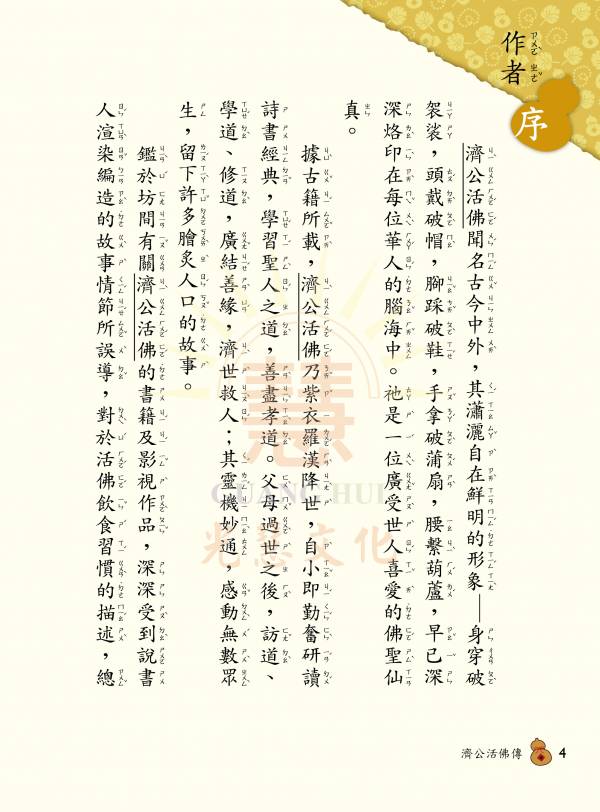 作者
序
濟公活佛聞名古今中外，其瀟灑自在鮮明的形象──身穿破
袈裟，頭戴破帽，腳踩破鞋，手拿破蒲扇，腰繫葫蘆，早已深
深烙印在每位華人的腦海中。祂是一位廣受世人喜愛的佛聖仙
真。
據古籍所載，濟公活佛乃紫衣羅漢降世，自小即勤奮研讀
詩書經典，學習聖人之道，善盡孝道。父母過世之後，訪道、
學道、修道，廣結善緣，濟世救人；其靈機妙通，感動無數眾
生，留下許多膾炙人口的故事。
鑑於坊間有關濟公活佛的書籍及影視作品，深深受到說書
人渲染編造的故事情節所誤導，對於活佛飲食習慣的描述，總
慧
GUANG HUI
光慧文化
濟公活佛傳
4